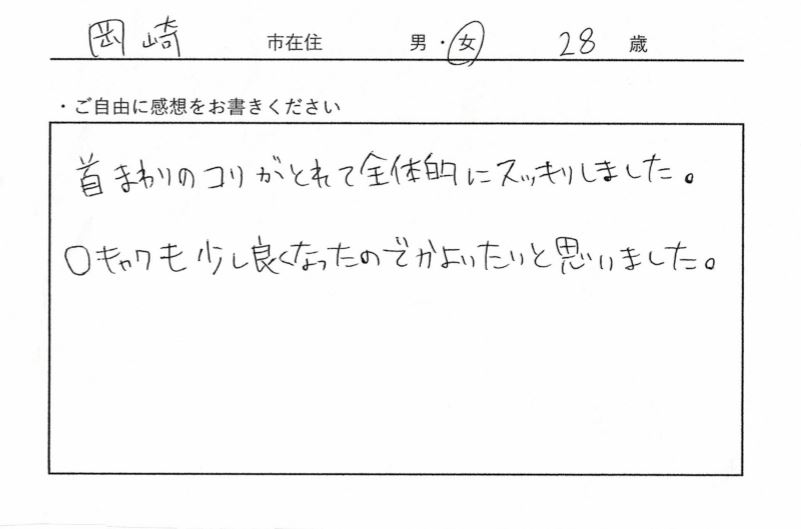 岡崎 市在住 男・女 28 歳
・ご自由に感想をお書きください
首まわりのコリがとれて全体的にスッキリしました。
○キャクも少し良くなったのでかよいたいと思いました。